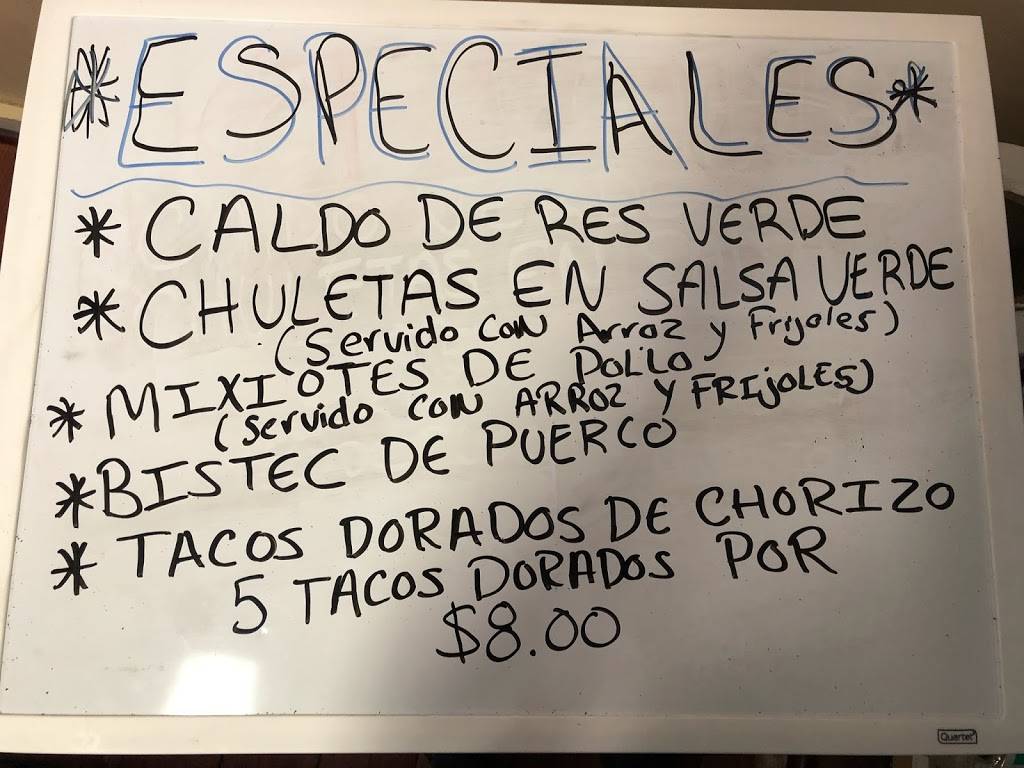 *ESPECIALES*
* CALDO DE RES VERDE
* CHULETAS EN SALSA VERDE
(Servido con Arroz y Frijoles)
* MIXIOTES DE POLLO
(Servido CON ARROZ Y FRIJOLES)
* BISTEC DE PUERCO
* TACOS DORADOS DE CHORIZO
5 TACOS DORADOS POR
$8.00
Quartet